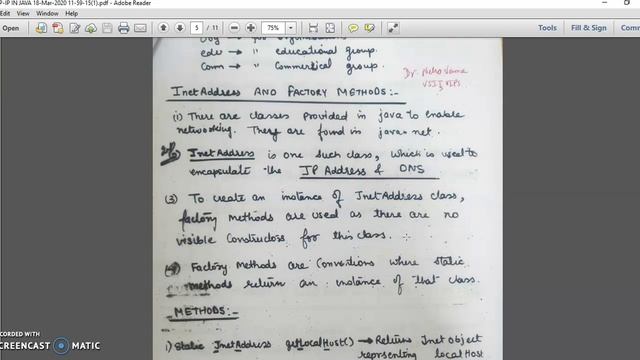 P-IP IN JAVA 18-Mar-2020 11-59-15(1).pdf - Adobe Reader
Open 5 / 11 75% Tools Fill & Sign Comment
edu → " educational group.
Com → " Commertical group.
InetAddress AND FACTORY METHODS:-
(1) There are classes provided in java to enable
networking. They are found in java.net.
InetAddress is one such class, which is used to
encapsulate the IP Address & DNS
(3) To create an instance of InetAddress class,
factory methods are used as there are no
visible Constructors for this class.
Factory Methods are Conventions where static
methods return an instance of that class.
METHODS:-
1) Static InetAddress getLocalHost() → Returns Inet object
representing local Host
RECORDED WITH
SCREENCAST MATIC